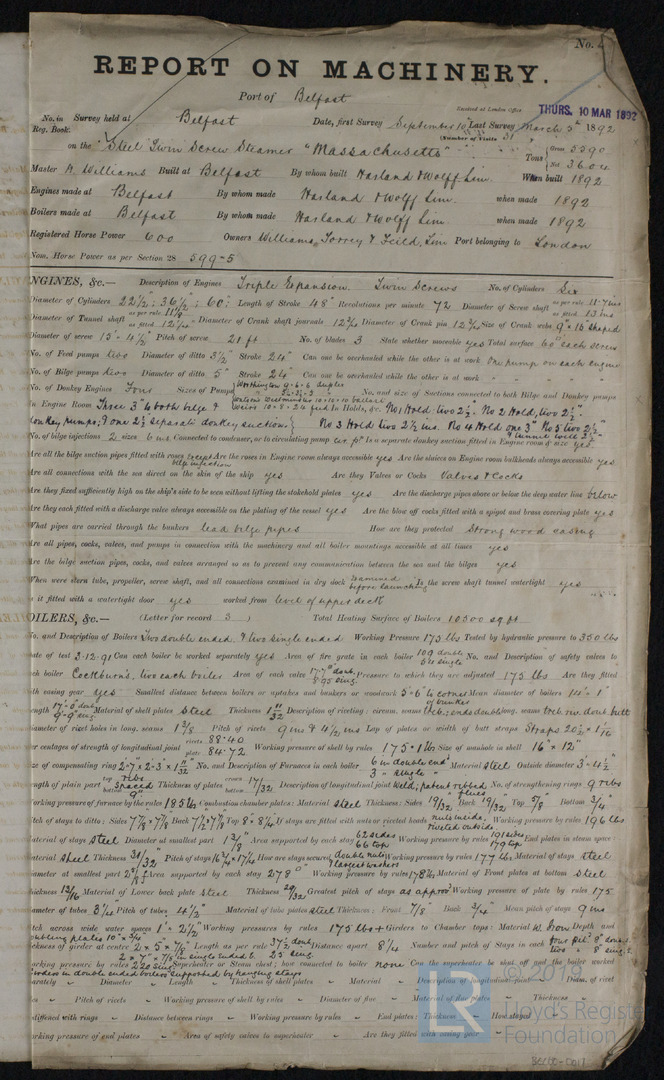 No.
REPORT ON MACHINERY.
Port of Belfast
Received at London Office THURS. 10 MAR 1892
No. in Survey held at Belfast Date, first Survey September 10th Last Survey March 5th 1892
Reg. Book. (Number of Visits 31)
on the Steel Twin Screw Steamer "Massachusetts" Tons Gross 5590
Net 3604
Master A. Williams Built at Belfast By whom built Harland & Wolff Lim. When built 1892
Engines made at Belfast By whom made Harland & Wolff Lim. when made 1892
Boilers made at Belfast By whom made Harland & Wolff Lim when made 1892
Registered Horse Power 600 Owners Williams, Torrey & Feild, Lim Port belonging to London
Nom. Horse Power as per Section 28 599-5
ENGINES, &c.— Description of Engines Triple Expansion Twin Screws No. of Cylinders Six
Diameter of Cylinders 22½; 36½; 60 Length of Stroke 48" Revolutions per minute 72 Diameter of Screw shaft as per rule 11.7 ins as fitted 13 ins
Diameter of Tunnel shaft as per rule as fitted 12¼ Diameter of Crank shaft journals 12¾ Diameter of Crank pin 12¾ Size of Crank webs 9" x 16 shaped
Diameter of screw 15'-4½" Pitch of screw 21 ft No. of blades 3 State whether moveable yes Total surface 60 each screw
No. of Feed pumps two Diameter of ditto 3½" Stroke 24" Can one be overhauled while the other is at work One pump on each engine
No. of Bilge pumps two Diameter of ditto 5" Stroke 24" Can one be overhauled while the other is at work " " "
No. of Donkey Engines Four Sizes of Pumps Worthington 9.6.6 duplex No. and size of Suctions connected to both Bilge and Donkey pumps
In Engine Room Three 3" to both bilge & Weirs 10.8.24 feed In Holds, &c. No 1 Hold, two 2½". No 2 Hold, two 2½".
donkey pumps, & one 2½ separate donkey suction No 3 Hold two 2½ ins. No 4 Hold one 3" No 5 two 2½"
No. of bilge injections 2 sizes 6 ins Connected to condenser, or to circulating pump Is a separate donkey suction fitted in Engine room & size yes
Are all the bilge suction pipes fitted with roses except bilge injection Are the roses in Engine room always accessible yes Are the sluices on Engine room bulkheads always accessible yes
Are all connections with the sea direct on the skin of the ship yes Are they Valves or Cocks Valves & Cocks
Are they fixed sufficiently high on the ship's side to be seen without lifting the stokehold plates yes Are the discharge pipes above or below the deep water line below
Are they each fitted with a discharge valve always accessible on the plating of the vessel yes Are the blow off cocks fitted with a spigot and brass covering plate yes
What pipes are carried through the bunkers lead bilge pipes How are they protected Strong wood casing
Are all pipes, cocks, valves, and pumps in connection with the machinery and all boiler mountings accessible at all times yes
Are the bilge suction pipes, cocks, and valves arranged so as to prevent any communication between the sea and the bilges yes
When were stern tube, propeller, screw shaft, and all connections examined in dry dock Examined before launching Is the screw shaft tunnel watertight yes
Is it fitted with a watertight door yes worked from level of upper deck
BOILERS, &c.— (Letter for record S) Total Heating Surface of Boilers 10300 sq ft
No. and Description of Boilers Two double ended, & two single ended Working Pressure 175 lbs Tested by hydraulic pressure to 350 lbs
Date of test 3-12-91 Can each boiler be worked separately yes Area of fire grate in each boiler 109 double No. and Description of safety valves to
each boiler Cockburn's, two each boiler Area of each valve 8.95 sing. Pressure to which they are adjusted 175 lbs Are they fitted
with easing gear yes Smallest distance between boilers or uptakes and bunkers or woodwork 5'-6" to corner of bunker Mean diameter of boilers
length Material of shell plates steel Thickness 1 11/32 Description of riveting: circum. seams long. seams
Diameter of rivet holes in long. seams 1 3/8 Pitch of rivets 9 ins & 4½ ins Lap of plates or width of butt straps Straps 20½ x 1 1/16
Per centages of strength of longitudinal joint rivets 88.40 plate 84.72 Working pressure of shell by rules 175.1 lbs Size of manhole in shell 16" x 12"
Size of compensating ring 2'-7" x 2'-3" x 1 11/32 No. and Description of Furnaces in each boiler 6 in double end 3 " single " Material steel Outside diameter 3'-4½"
Length of plain part top ribs bottom spaced 9" Thickness of plates crown bottom 17/32 Description of longitudinal joint Weld; patent ribbed flues No. of strengthening rings 9 ribs
Working pressure of furnace by the rules 185 lbs Combustion chamber plates: Material steel Thickness: Sides 19/32 Back 19/32 Top 5/8 Bottom 3/4"
Pitch of stays to ditto: Sides 7⅞ x 7⅞ Back 7½ x 7⅞ Top 8" 8¼ If stays are fitted with nuts or riveted heads nuts inside, riveted outside Working pressure by rules 196 lbs
Material of stays steel Diameter at smallest part 1 3/8" Area supported by each stay 62 sides 66 top Working pressure by rules 191 sides 179 top End plates in steam space:
Material steel Thickness 31/32 Pitch of stays 16¼ x 17¼ How are stays secured double nuts & largest washers Working pressure by rules 177 lbs Material of stays steel
Diameter at smallest part Area supported by each stay 278" Working pressure by rules 178 lbs Material of Front plates at bottom steel
Thickness 13/16 Material of Lower back plate steel Thickness 29/32 Greatest pitch of stays as approd Working pressure of plate by rules 175
Diameter of tubes 3¼" Pitch of tubes 4½" Material of tube plates steel Thickness: Front 7/8" Back 3/4" Mean pitch of stays 9 ins
Pitch across wide water spaces 1'-2½" Working pressures by rules 175 lbs + Girders to Chamber tops: Material W. Iron Depth and
doubling plates 10" x 3/4"
thickness of girder at centre Length as per rule Distance apart 8¼ Number and pitch of Stays in each
Working pressure by rules Superheater or Steam chest; how connected to boiler none Can the superheater be shut off and the boiler worked
Girders in double ended boilers supported by hanging stays
separately Diameter Length Thickness of shell plates Material Description of longitudinal joint Diam. of rivet
holes Pitch of rivets Working pressure of shell by rules Diameter of flue Material of flue plates Thickness
If stiffened with rings Distance between rings Working pressure by rules End plates: Thickness How stayed
Working pressure of end plates Area of safety valves to superheater Are they fitted with easing gear
© 2019
Lloyd's Register
Foundation